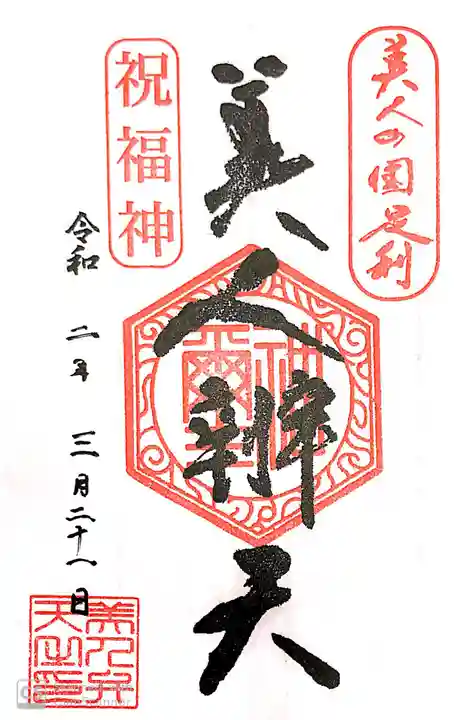 美人の国足利
美人辨天
祝福神
令和 二年 三月二十一日
美人弁
天之印